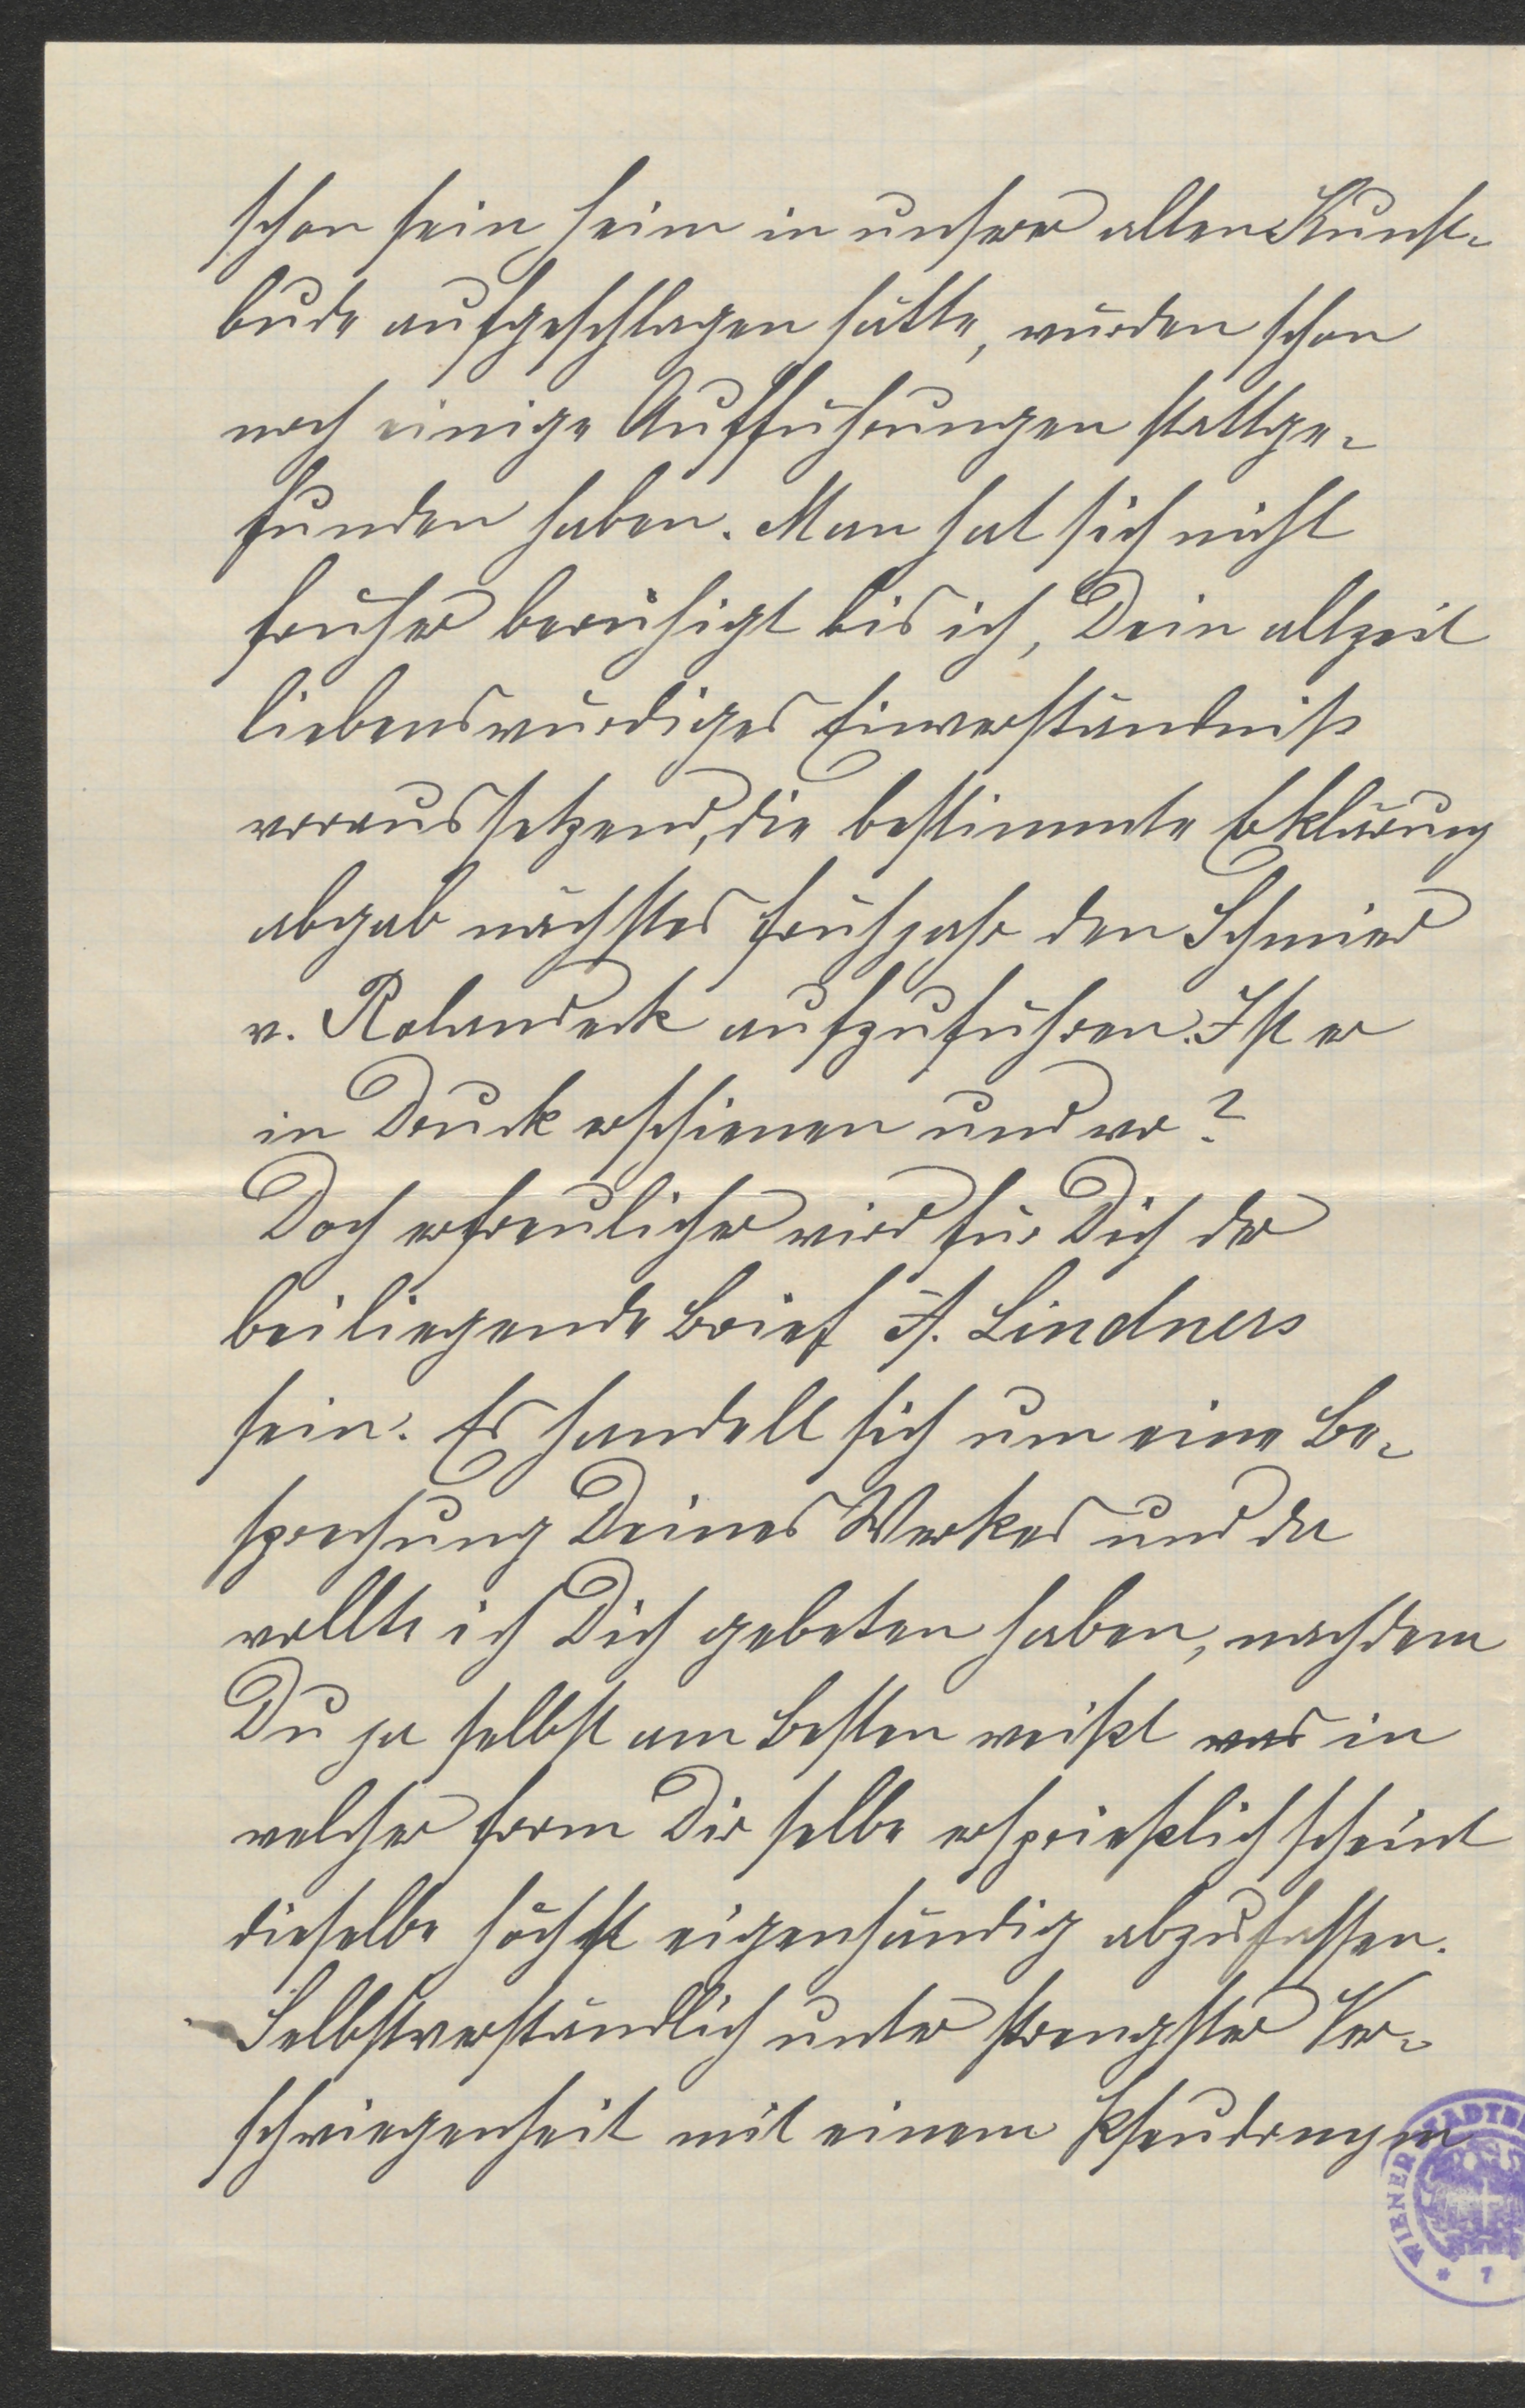 schon sein Heim in unserer alten Kunst-
bude aufgeschlagen hätte, würden schon
noch einige Aufführungen stattge-
funden haben. Man hat sich nicht
früher beruhigt bis ich, Dein allzeit
liebenswürdiges Einverständniß
voraussetzend, die bestimmte Erklärung
abgab nächstes Frühjahr den Schmied
v. Rolandeck aufzuführen. Ist er
in Druck erschienen und wo?
Doch erfreulicher wird für Dich der
beiliegende Brief A. Lindners
sein. Es handelt sich um eine Be-
sprechung Deines Werkes und da
wollte ich Dich gebeten haben, nachdem
Du ja selbst am Besten weißt was in
welcher Form Dir selbe ersprießlich scheint
dieselbe höchst eigenhändig abzufassen.
Selbstverständlich unter strengster Ver-
schwiegenheit mit einem Pseudonym
WIENER STADTB
* 7